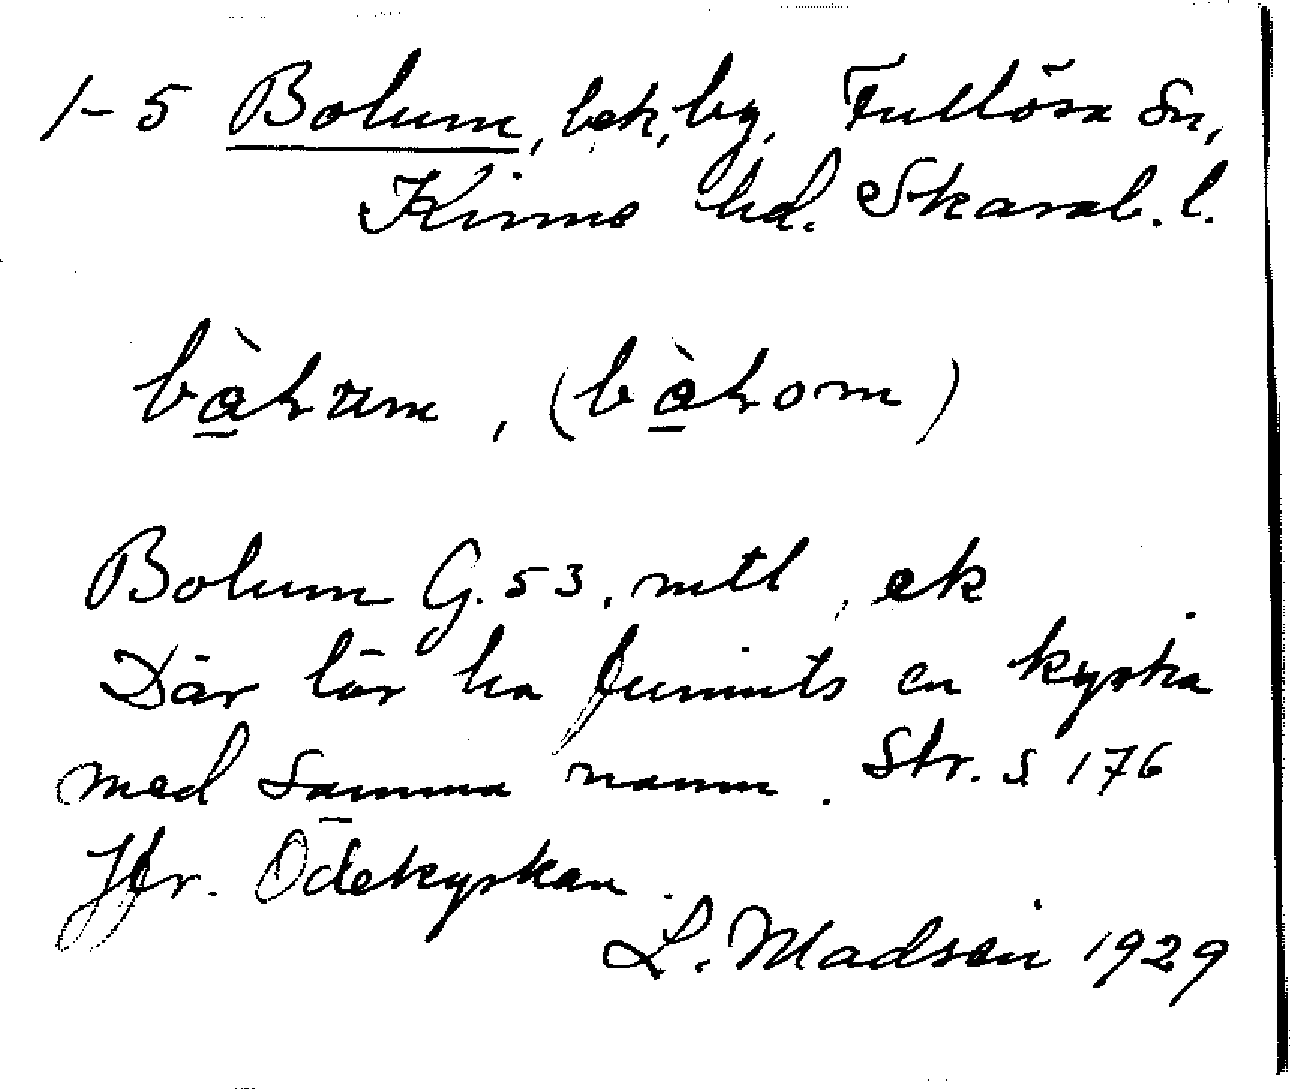 1-5 Bolum, bek, by, Fullösa Sn,
Kinne hd. Skarab. l.
bàhum, (bàhom)
Bolum G. 53, mtl, ek
Där lär ha funnits en kyrka
med samma namn. Str. s 176
Jfr. Ödekyrkan.
L. Madsén 1929